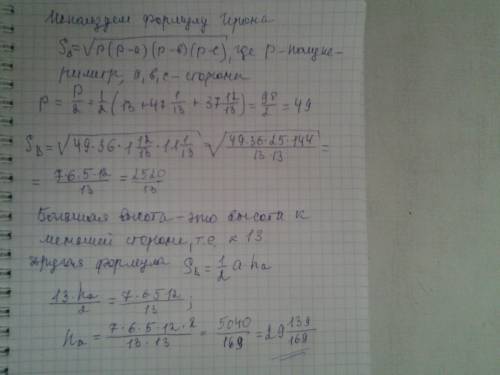 Используем формулу Герона
S_Δ=√(p(p-a)(p-в)(p-c)), где p-полупе-
риметр, а, в, с-стороны
p = P/2 = 1/2 (13 + 47 1/13 + 37 12/13) = 98/2 = 49
S_Δ = √(49·36·1 12/13·11 1/13) = √(49·36·25·144/13·13) =
= 7·6·5·12/13 = 2520/13
Большая высота - это высота к
меньшей стороне, т.е. к 13
другая формула S_Δ = 1/2 a·ha
13·ha/2 = 7·6·5·12/13;
ha = 7·6·5·12·2/13·13 = 5040/169 = 29 139/169